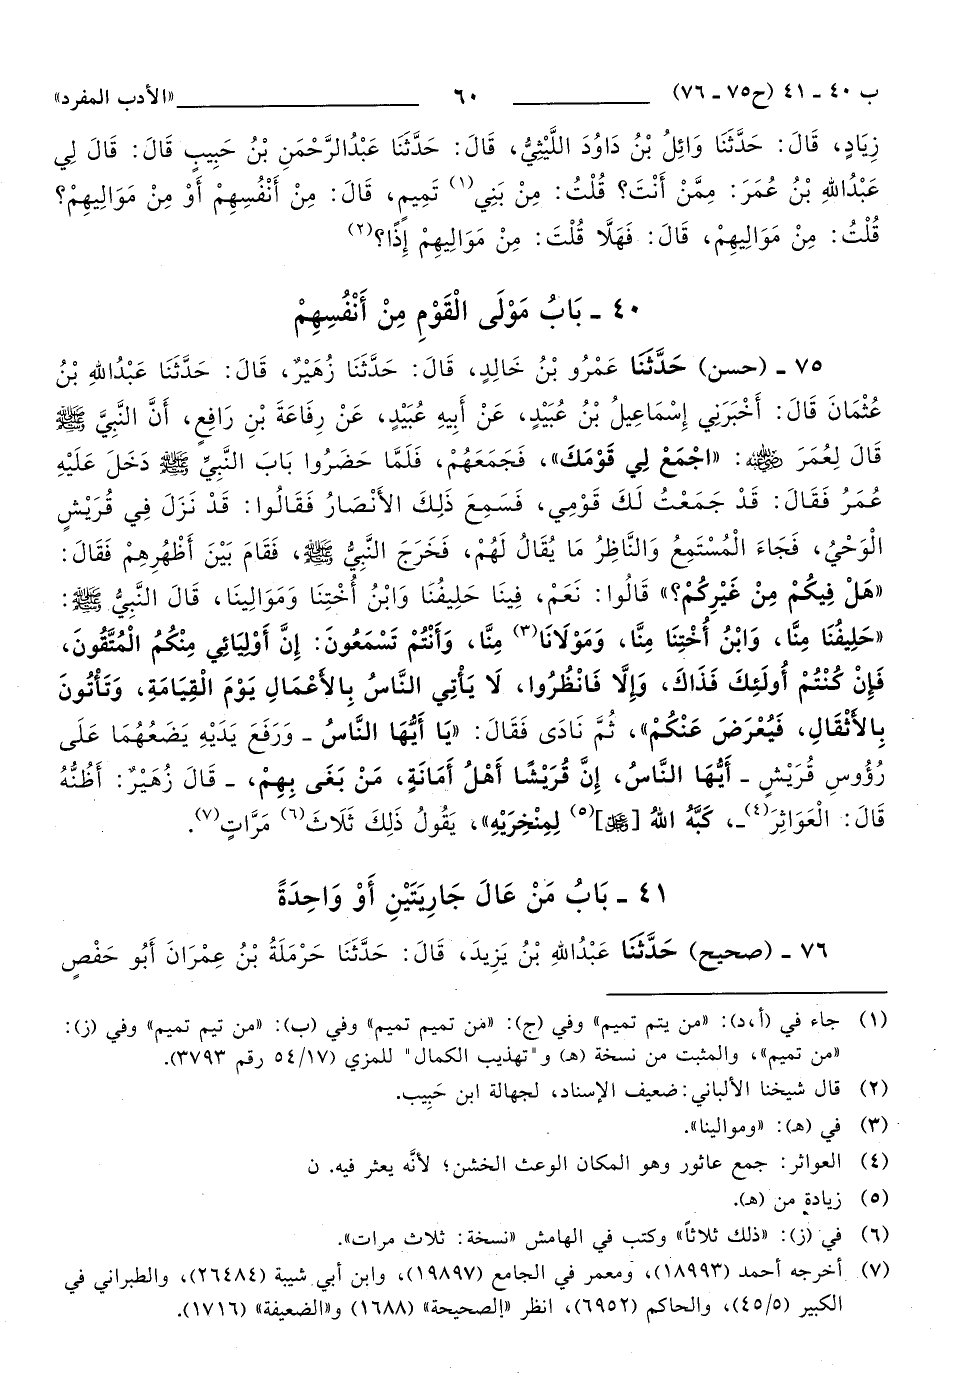 ب ٤٠ ـ ٤١ (ح٧٥ ـ ٧٦) ٦٠ «الأدب المفرد»
زِيَادٍ، قَالَ: حَدَّثَنَا وَائِلُ بْنُ دَاوُدَ اللَّيْثِيُّ، قَالَ: حَدَّثَنَا عَبْدُالرَّحْمَنِ بْنُ حَبِيبٍ قَالَ: قَالَ لِي
عَبْدُاللهِ بْنُ عُمَرَ: مِمَّنْ أَنْتَ؟ قُلْتُ: مِنْ بَنِي(١) تَمِيمٍ، قَالَ: مِنْ أَنْفُسِهِمْ أَوْ مِنْ مَوَالِيهِمْ؟
قُلْتُ: مِنْ مَوَالِيهِمْ، قَالَ: فَهَلَّا قُلْتَ: مِنْ مَوَالِيهِمْ إِذًا؟(٢)
٤٠ ـ بَابُ مَوْلَى الْقَوْمِ مِنْ أَنْفُسِهِمْ
٧٥ ـ (حسن) حَدَّثَنَا عَمْرُو بْنُ خَالِدٍ، قَالَ: حَدَّثَنَا زُهَيْرٌ، قَالَ: حَدَّثَنَا عَبْدُاللهِ بْنُ
عُثْمَانَ قَالَ: أَخْبَرَنِي إِسْمَاعِيلُ بْنُ عُبَيْدٍ، عَنْ أَبِيهِ عُبَيْدٍ، عَنْ رِفَاعَةَ بْنِ رَافِعٍ، أَنَّ النَّبِيَّ ﷺ
قَالَ لِعُمَرَ رضي الله عنه: «اجْمَعْ لِي قَوْمَكَ»، فَجَمَعَهُمْ، فَلَمَّا حَضَرُوا بَابَ النَّبِيِّ ﷺ دَخَلَ عَلَيْهِ
عُمَرُ فَقَالَ: قَدْ جَمَعْتُ لَكَ قَوْمِي، فَسَمِعَ ذَلِكَ الأَنْصَارُ فَقَالُوا: قَدْ نَزَلَ فِي قُرَيْشٍ
الْوَحْيُ، فَجَاءَ الْمُسْتَمِعُ وَالنَّاظِرُ مَا يُقَالُ لَهُمْ، فَخَرَجَ النَّبِيُّ ﷺ، فَقَامَ بَيْنَ أَظْهُرِهِمْ فَقَالَ:
«هَلْ فِيكُمْ مِنْ غَيْرِكُمْ؟» قَالُوا: نَعَمْ، فِينَا حَلِيفُنَا وَابْنُ أُخْتِنَا وَمَوَالِينَا، قَالَ النَّبِيُّ ﷺ:
«حَلِيفُنَا مِنَّا، وَابْنُ أُخْتِنَا مِنَّا، وَمَوْلَانَا(٣) مِنَّا، وَأَنْتُمْ تَسْمَعُونَ: إِنَّ أَوْلِيَائِي مِنْكُمُ الْمُتَّقُونَ،
فَإِنْ كُنْتُمْ أُولَئِكَ فَذَاكَ، وَإِلَّا فَانْظُرُوا، لَا يَأْتِي النَّاسُ بِالأَعْمَالِ يَوْمَ الْقِيَامَةِ، وَتَأْتُونَ
بِالأَثْقَالِ، فَيُعْرَضَ عَنْكُمْ»، ثُمَّ نَادَى فَقَالَ: «يَا أَيُّهَا النَّاسُ ـ وَرَفَعَ يَدَيْهِ يَضَعُهُمَا عَلَى
رُؤُوسِ قُرَيْشٍ ـ أَيُّهَا النَّاسُ، إِنَّ قُرَيْشًا أَهْلُ أَمَانَةٍ، مَنْ بَغَى بِهِمْ، ـ قَالَ زُهَيْرٌ: أَظُنُّهُ
قَالَ: الْعَوَاثِرَ(٤) ـ، كَبَّهُ اللهُ [ﷻ](٥) لِمِنْخِرَيْهِ»، يَقُولُ ذَلِكَ ثَلَاثَ(٦) مَرَّاتٍ(٧).
٤١ ـ بَابُ مَنْ عَالَ جَارِيَتَيْنِ أَوْ وَاحِدَةً
٧٦ ـ (صحيح) حَدَّثَنَا عَبْدُاللهِ بْنُ يَزِيدَ، قَالَ: حَدَّثَنَا حَرْمَلَةُ بْنُ عِمْرَانَ أَبُو حَفْصٍ
(١) جاء في (أ،د): «من يتم تميم» وفي (ج): «من تميم تميم» وفي (ب): «من تيم تميم» وفي (ز):
«من تميم»، والمثبت من نسخة (هـ) و"تهذيب الكمال" للمزي (٥٤/١٧ رقم ٣٧٩٣).
(٢) قال شيخنا الألباني: ضعيف الإسناد، لجهالة ابن حَبِيب.
(٣) في (هـ): «وموالينا».
(٤) العواثر: جمع عاثور وهو المكان الوعث الخشن؛ لأنَّه يعثر فيه. ن
(٥) زيادة من (هـ).
(٦) في (ز): «ذلك ثلاثاً» وكتب في الهامش «نسخة: ثلاث مرات».
(٧) أخرجه أحمد (١٨٩٩٣)، ومعمر في الجامع (١٩٨٩٧)، وابن أبي شيبة (٢٦٤٨٤)، والطبراني في
الكبير (٤٥/٥)، والحاكم (٦٩٥٢)، انظر «الصحيحة» (١٦٨٨) و«الضعيفة» (١٧١٦).